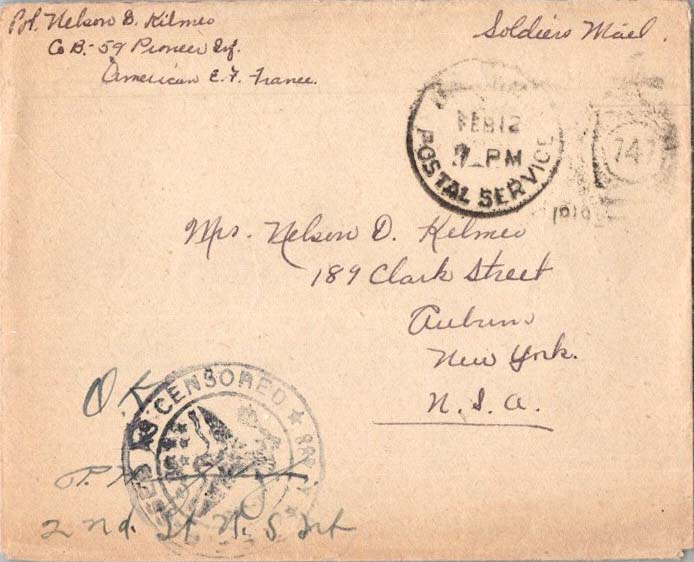 Pvt. Nelson D. Kilmer
Co B.- 59 Pioneer Inf.
American E. F. France.
Soldiers Mail.
FEB 12
PM
POSTAL SERVICE
747
Mrs. Nelson D. Kilmer
189 Clark Street
Auburn
New York.
U. S. A.
O.K.
AS CENSORED
2nd. Lt. U. S. Inf